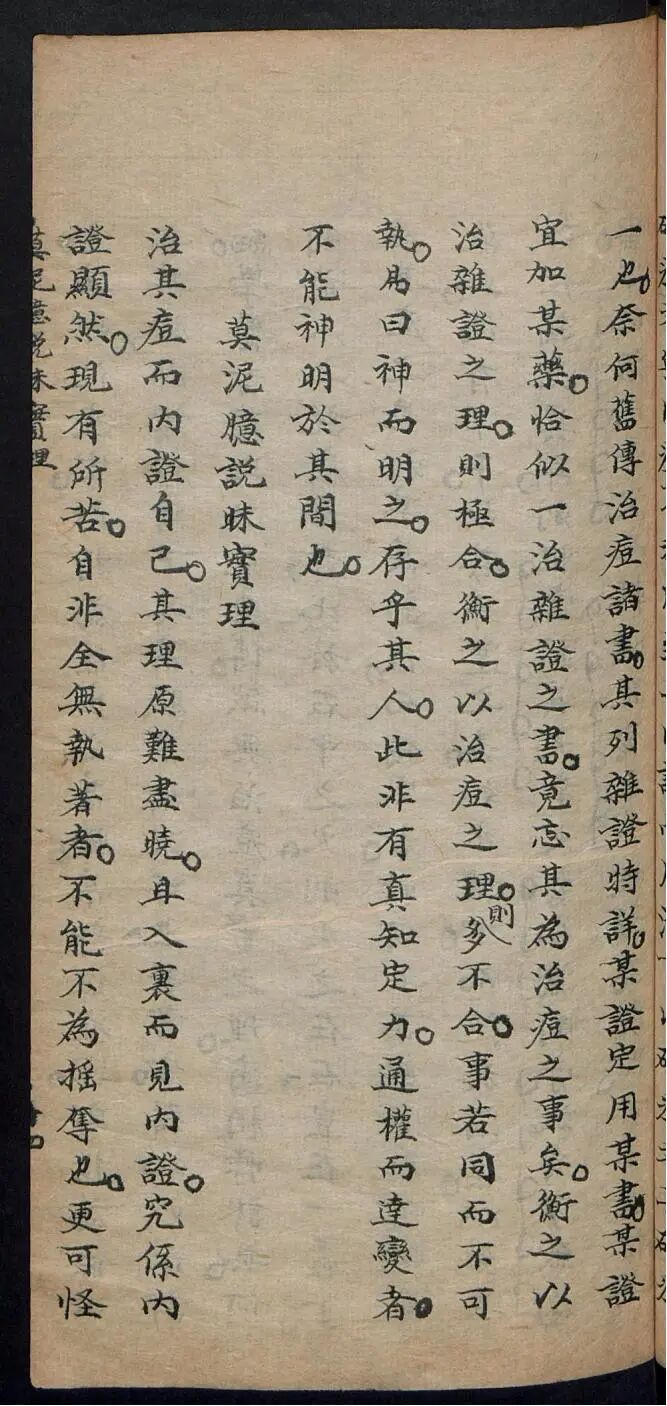 一也。奈何舊傳治痘諸書。其列雜證時詳。某證定用某書。某證
宜加某藥。恰似一治雜證之書。竟忘其為治痘之事矣。衡之以
治雜證之理。則極合。衡之以治痘之理。則多不合。事若同而不可
執。易曰神而明之。存乎其人。此非有真知定力。通權而達變者。
不能神明於其間也。
莫泥臆説昧實理
治其痘而內證自已。其理原難盡曉。且入裏而見內證。究係內
證顯然。現有所苦。自非全無執著者。不能不為摇奪也。更可怪
莫泥臆説昧實理